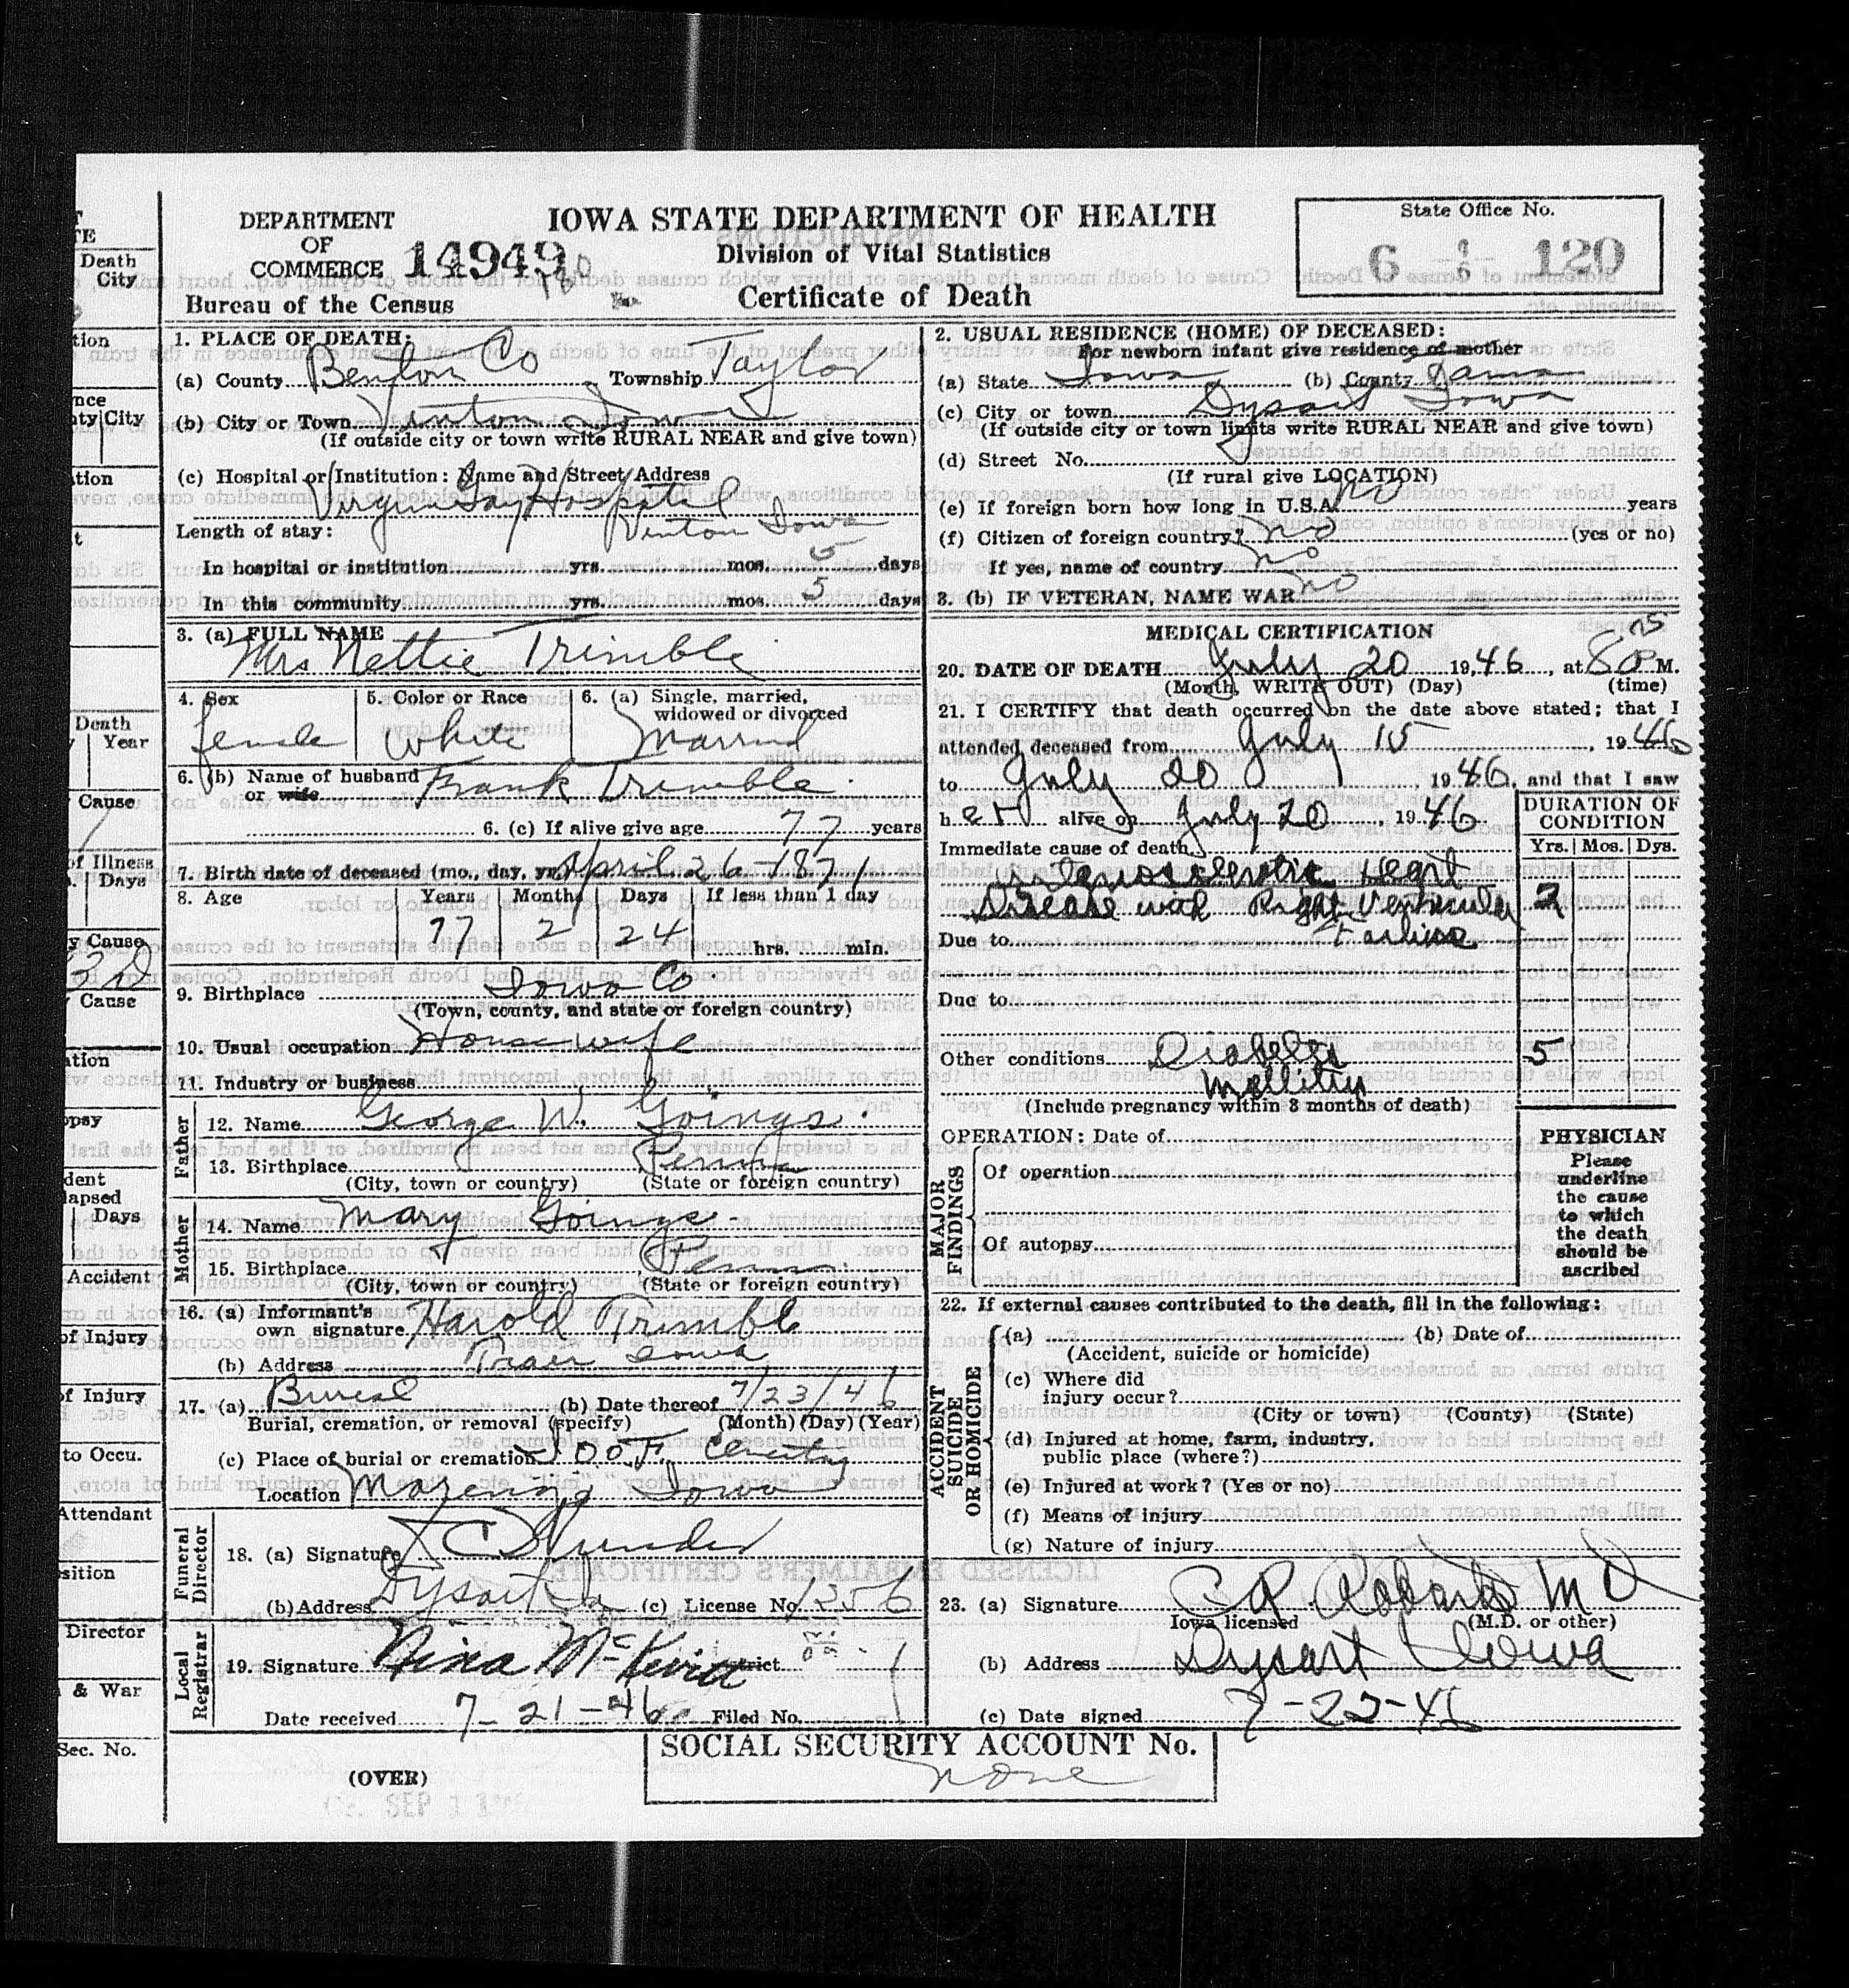 DEPARTMENT
OF
COMMERCE 14949
Bureau of the Census
IOWA STATE DEPARTMENT OF HEALTH
Division of Vital Statistics
Certificate of Death
State Office No.
6 120
1. PLACE OF DEATH:
(a) County Benton Co Township Taylor
(b) City or Town Vinton Iowa
(If outside city or town write RURAL NEAR and give town)
(c) Hospital or Institution: Name and Street Address
Virginia Gay Hospital
Length of stay: Vinton Iowa
In hospital or institution yrs. mos. 5 days
In this community yrs. mos. 5 days
3. (a) FULL NAME
Mrs Nettie Trimble
4. Sex 5. Color or Race 6. (a) Single, married,
widowed or divorced
female White Married
6. (b) Name of husband Frank Trimble
or wife
6. (c) If alive give age 77 years
7. Birth date of deceased (mo., day, yr.) April 26-1871
8. Age Years Months Days If less than 1 day
77 2 24 hrs. min.
9. Birthplace Iowa Co
(Town, county, and state or foreign country)
10. Usual occupation Housewife
11. Industry or business
Father
12. Name George W. Goings.
13. Birthplace Penna
(City, town or country) (State or foreign country)
Mother
14. Name Mary Goings
15. Birthplace Penna.
(City, town or country) (State or foreign country)
16. (a) Informant's
own signature Harold Trimble
(b) Address Traer Iowa
17. (a) Burial (b) Date thereof 7/23/46
Burial, cremation, or removal (specify) (Month) (Day) (Year)
(c) Place of burial or cremation I O O F. Cemetery
Location Marengo Iowa
Funeral Director
18. (a) Signature
(b) Address Dysart Ia (c) License No. 1356
Local Registrar
19. Signature Nina McKevitt District
Date received 7-21-46 Filed No.
(OVER)
SEP
2. USUAL RESIDENCE (HOME) OF DECEASED:
For newborn infant give residence of mother
(a) State Iowa (b) County Tama
(c) City or town Dysart Iowa
(If outside city or town limits write RURAL NEAR and give town)
(d) Street No.
(If rural give LOCATION)
(e) If foreign born how long in U.S.A. no years
(f) Citizen of foreign country? no (yes or no)
If yes, name of country no
3. (b) IF VETERAN, NAME WAR no
MEDICAL CERTIFICATION
20. DATE OF DEATH July 20 1946, at 8 25 P M.
(Month, WRITE OUT) (Day) (time)
21. I CERTIFY that death occurred on the date above stated; that I
attended deceased from July 15, 1946
to July 20, 1946, and that I saw
h er alive on July 20, 1946
DURATION OF CONDITION
Yrs. Mos. Dys.
Immediate cause of death
Arteriosclerotic Heart
Disease with Right Ventricular 2
Due to Failure
Due to
Other conditions Diabetes 5
Mellitus
(Include pregnancy within 3 months of death)
OPERATION: Date of
MAJOR FINDINGS
Of operation
Of autopsy
PHYSICIAN
Please
underline
the cause
to which
the death
should be
ascribed
22. If external causes contributed to the death, fill in the following:
ACCIDENT SUICIDE OR HOMICIDE
(a) (b) Date of
(Accident, suicide or homicide)
(c) Where did
injury occur?
(City or town) (County) (State)
(d) Injured at home, farm, industry,
public place (where?)
(e) Injured at work? (Yes or no)
(f) Means of injury
(g) Nature of injury
23. (a) Signature C R Roberts M D
Iowa licensed (M.D. or other)
(b) Address Dysart Iowa
(c) Date signed 7-22-46
SOCIAL SECURITY ACCOUNT No.
none
Death
City
Death
Year
Cause
of Illness
Days
Cause
Cause
Days
Accident
of Injury
of Injury
to Occu.
Attendant
Director
& War
Sec. No.